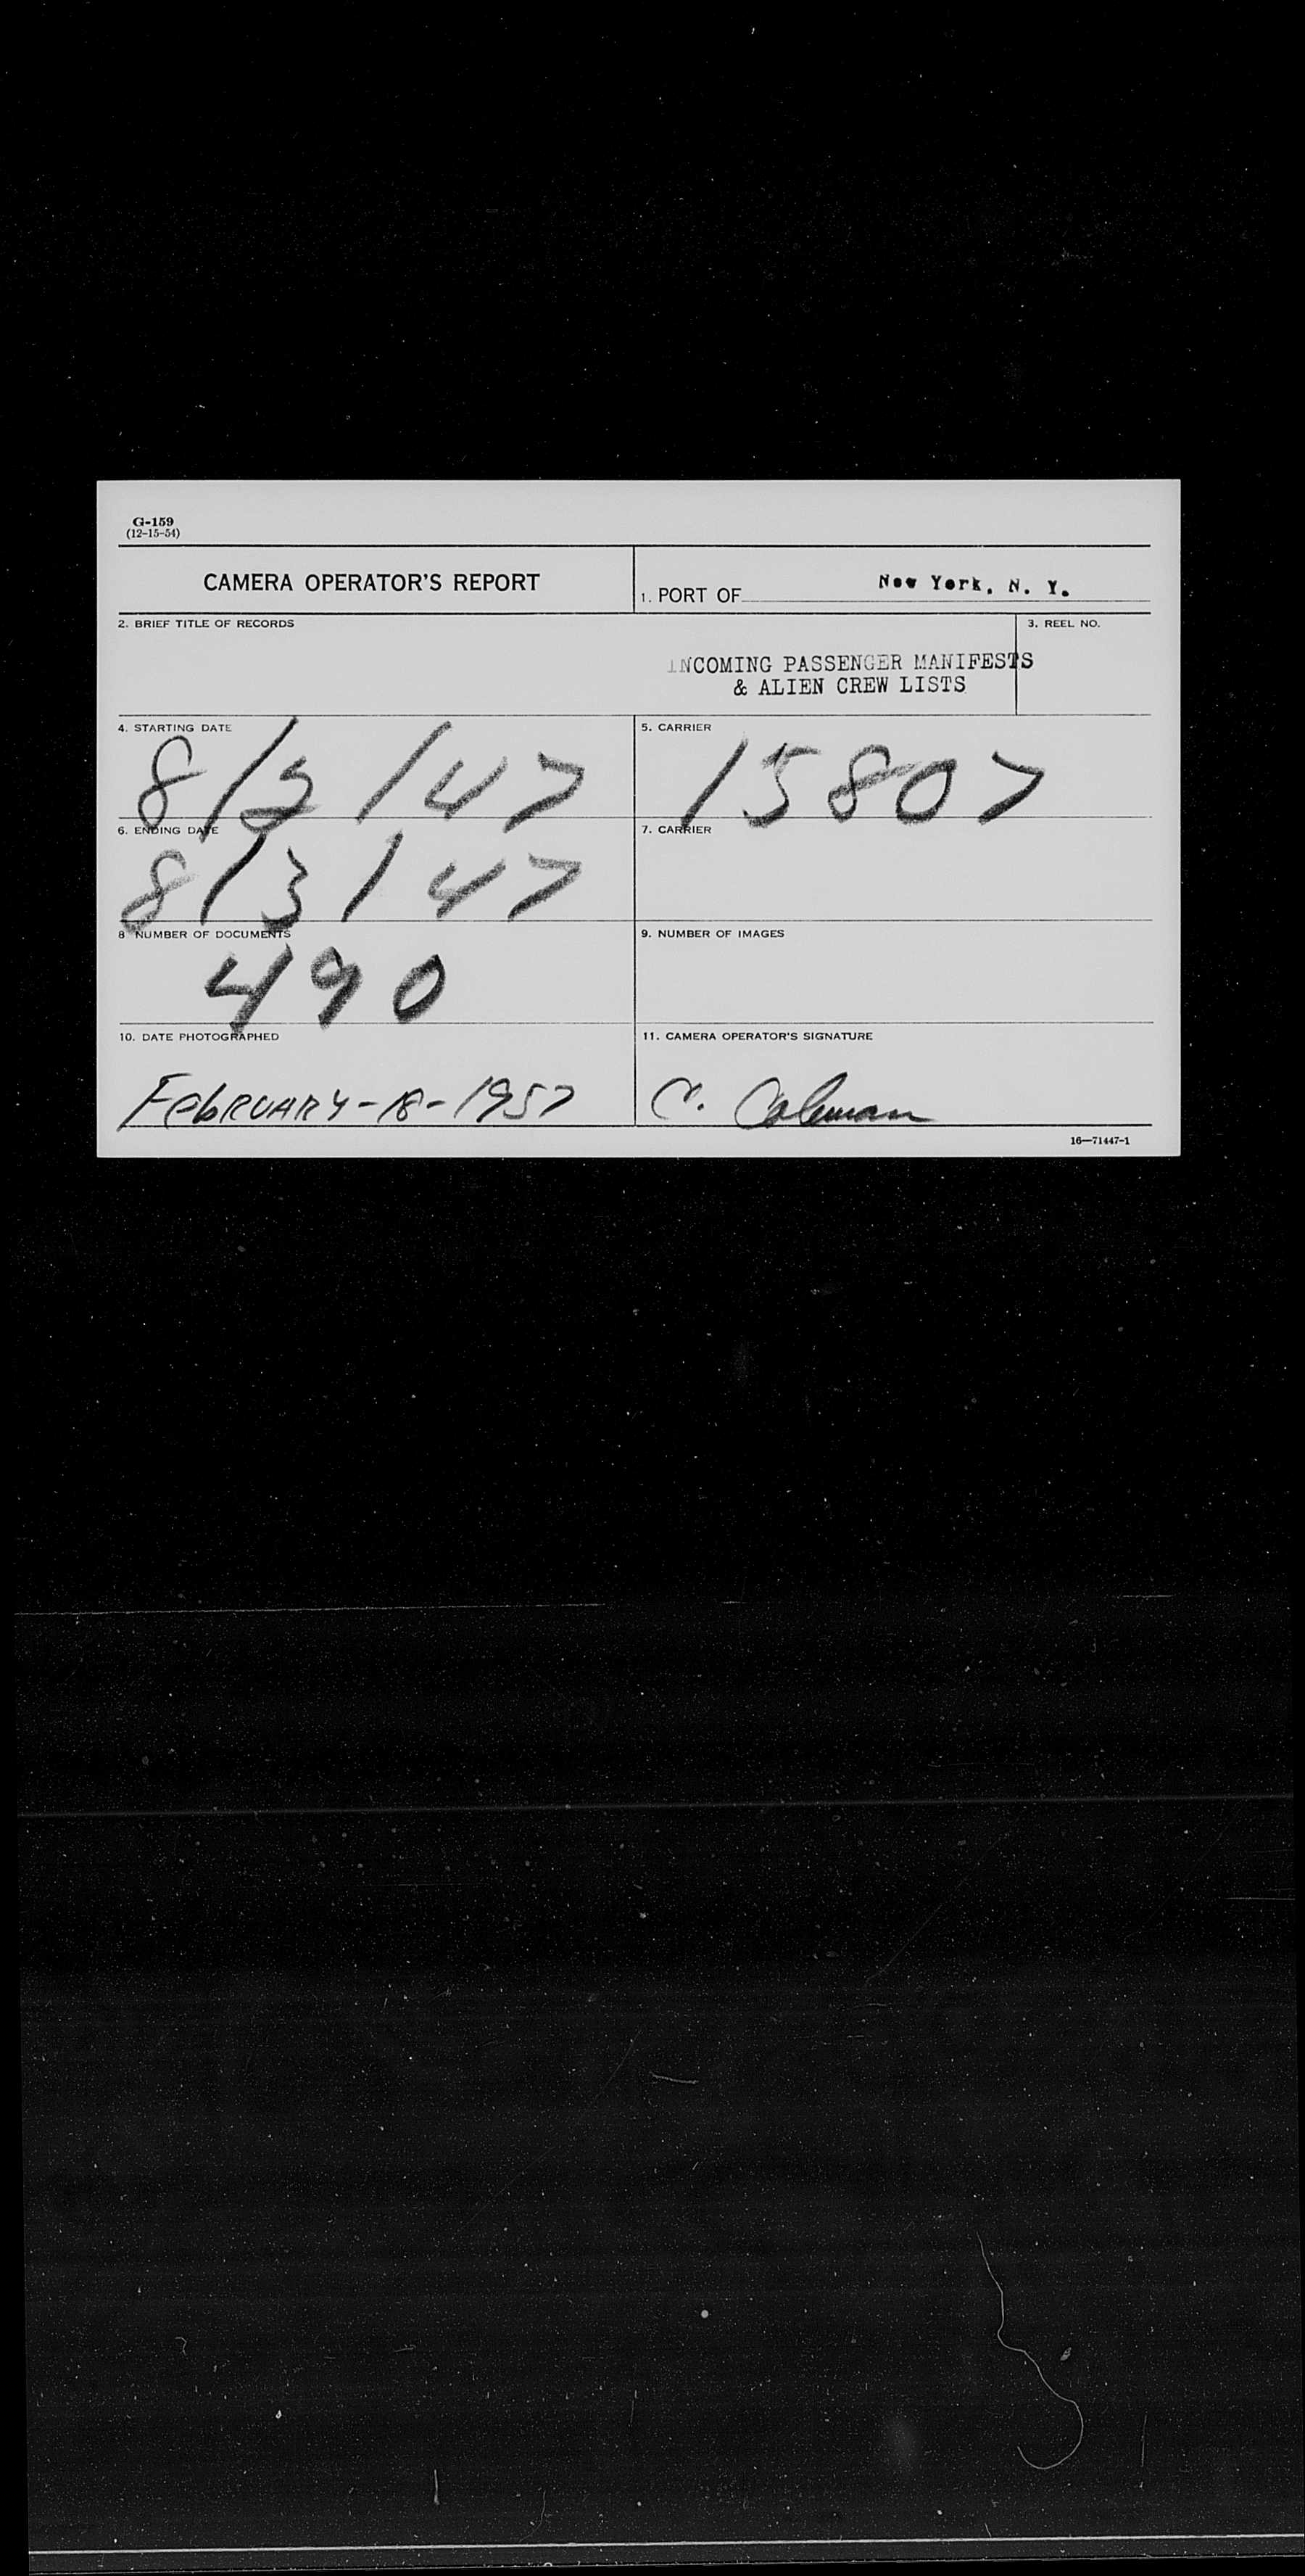 G-159
(12-15-54)
CAMERA OPERATOR'S REPORT
1. PORT OF New York, N. Y.
2. BRIEF TITLE OF RECORDS
3. REEL NO.
INCOMING PASSENGER MANIFESTS
& ALIEN CREW LISTS
4. STARTING DATE
8/2/47
5. CARRIER
15807
6. ENDING DATE
8/3/47
7. CARRIER
8 NUMBER OF DOCUMENTS
490
9. NUMBER OF IMAGES
10. DATE PHOTOGRAPHED
FebRUARY-18-1957
11. CAMERA OPERATOR'S SIGNATURE
C. Coleman
16—71447-1